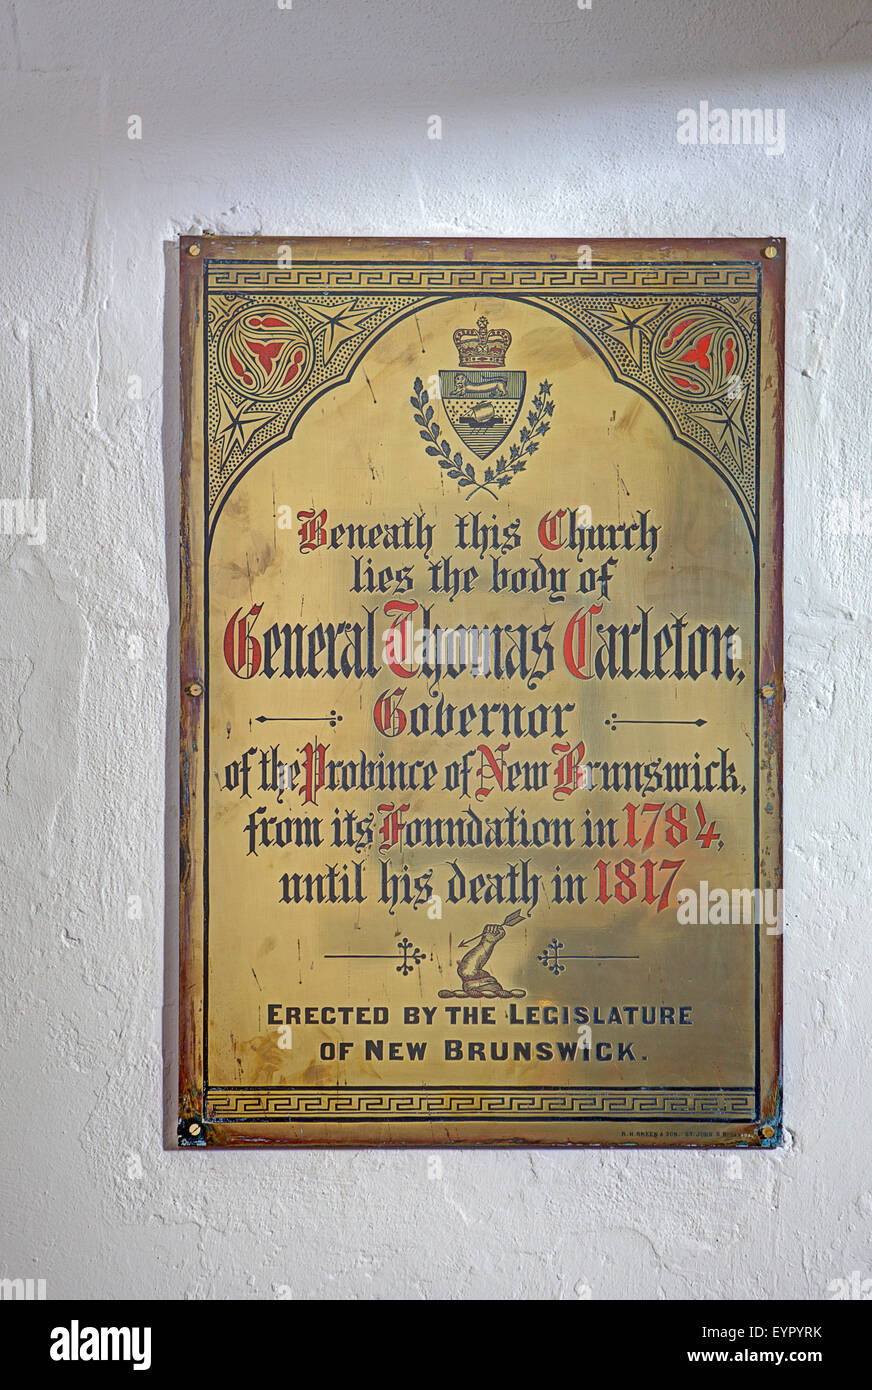 Beneath this Church
lies the body of
General Thomas Carleton,
Governor
of the Province of New Brunswick,
from its Foundation in 1784,
until his death in 1817.
ERECTED BY THE LEGISLATURE
OF NEW BRUNSWICK.
R. H. GREEN & SON. ST. JOHN
alamy
a
alamy stock photo
EYPYRK
www.alamy.com